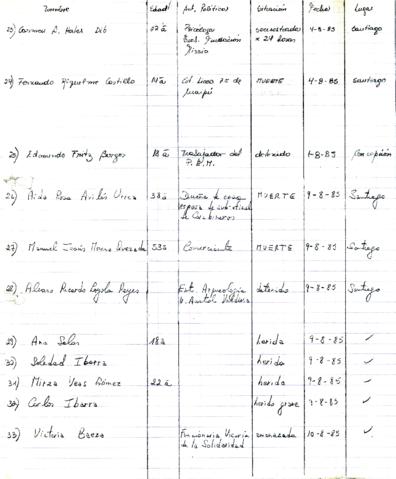 Nombre Edad Ant. Políticos Situación Fecha Lugar
23) Carmen A. Hales Dib 22 a Psicóloga secuestrada 9-8-85 Santiago
x 24 horas
Missio
24) Fernando Riquelme Castillo 19 a Col. Liceo de MUERTE 4-8-85 Santiago
Maipú
25) Edmundo Fritz Borges 18 a Trabajador del detenido 1-8-85 Concepción
P.E.M.
26) Aida Rosa Avilés Urrea 38 a Dueña de casa MUERTE 9-8-85 Santiago
esposa de
de Carabineros
27) Manuel Jesús 53 a Comerciante MUERTE 9-8-85 Santiago
28) Alvaro Ricardo Loyola Reyes Est. Arqueología detenido 9-8-85 Santiago
U. Austral Valdivia
29) Ana Salas 18 a herida 9-8-85 ✓
30) Soledad Ibarra herida 9-8-85 ✓
31) Mirza Veas Gómez 22 a herida 9-8-85 ✓
32) Carlos Ibarra herido grave 9-8-85 ✓
33) Victoria Baeza Funcionaria Vicaría amenazada 10-8-85 ✓
de la Solidaridad